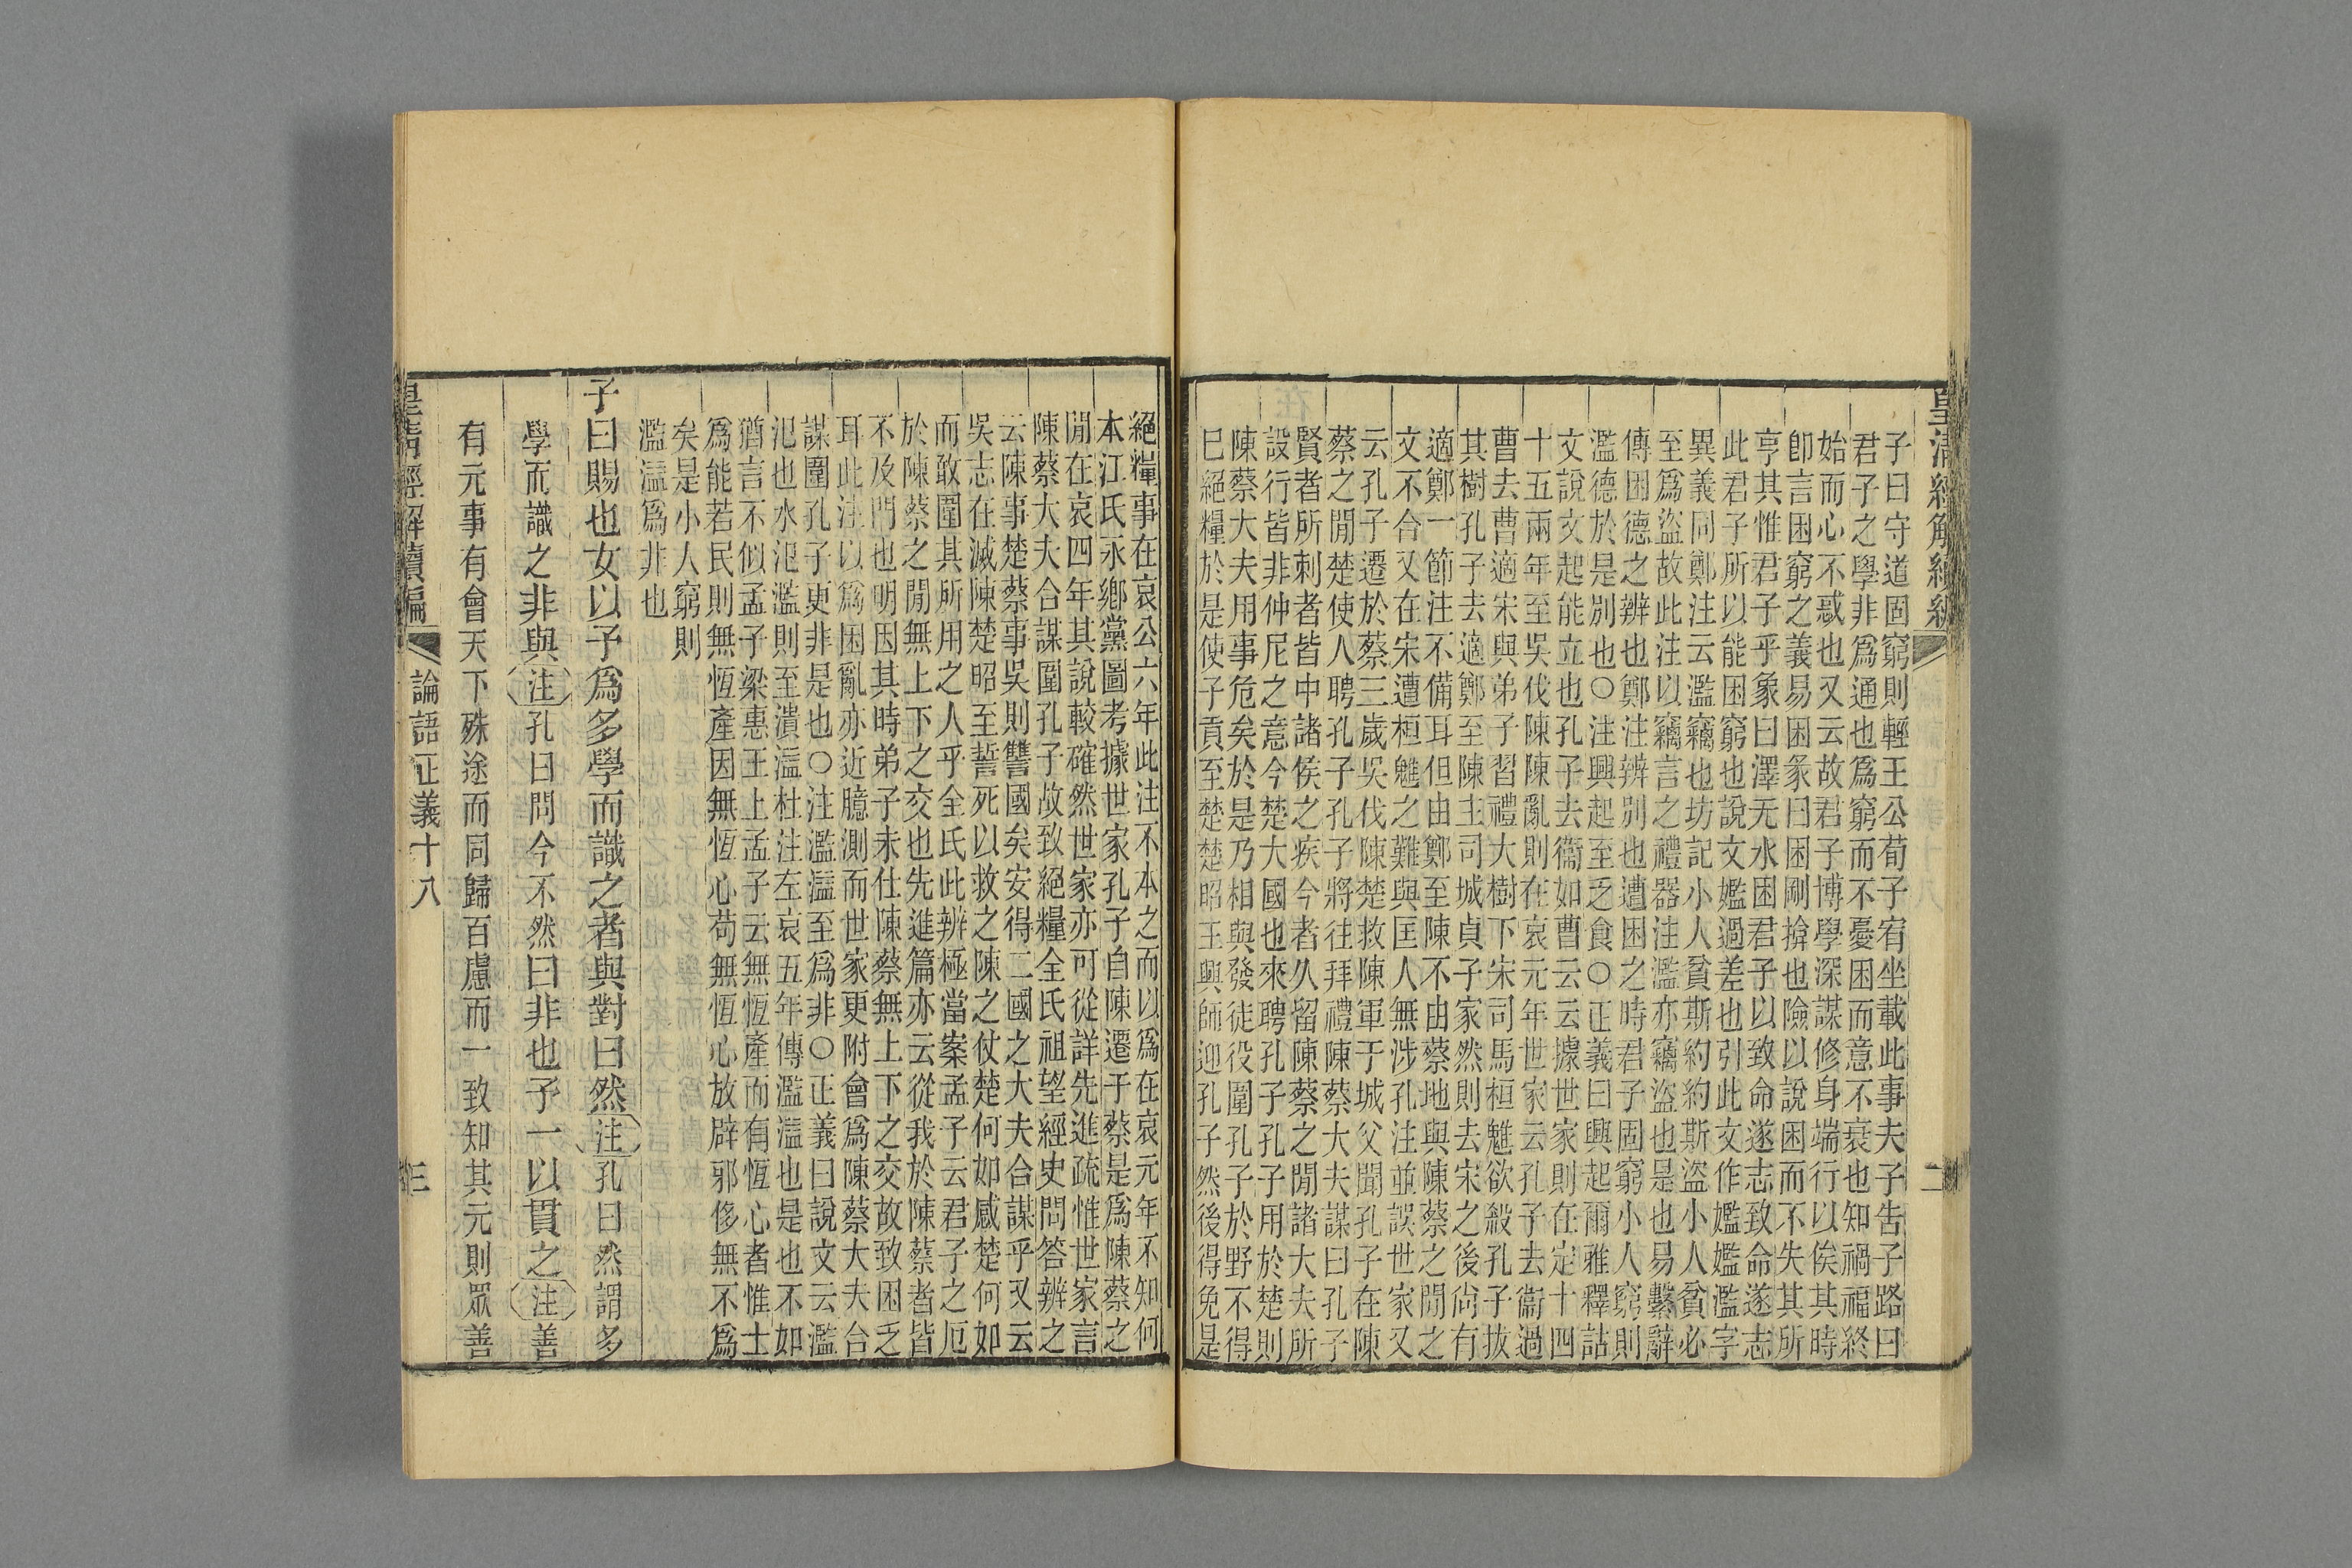 皇清經解續編
二
子曰守道固窮則輕王公荀子宥坐載此事夫子告子路曰
君子之學非爲通也爲窮而不憂困而意不衰也知禍福終
始而心不惑也又云故君子博學深謀修身端行以俟其時
卽言困窮之義易困彖曰困剛揜也險以說困而不失其所
亨其惟君子乎象曰澤无水困君子以致命遂志致命遂志
此君子所以能困窮也說文㜮過差也引此文作㜮㜮濫字
異義同鄭注云濫竊也坊記小人貧斯約約斯盜小人貧必
至爲盜故此注以竊言之禮器注濫亦竊盜也是也易繫辭
傳困德之辨也鄭注辨別也遭困之時君子固窮小人窮則
濫德於是別也○注興起至乏食○正義曰興起爾雅釋詁
文說文起能立也孔子去衞如曹云云據世家則在定十四
十五兩年至吳伐陳陳亂則在哀元年世家云孔子去衞過
曹去曹適宋與弟子習禮大樹下宋司馬桓魋欲殺孔子拔
其樹孔子去適鄭至陳主司城貞子家然則去宋之後尙有
適鄭一節注不備耳但由鄭至陳不由蔡地與陳蔡之閒之
文不合又在宋遭桓魋之難與匡人無涉孔注並誤世家又
云孔子遷於蔡三歲吳伐陳楚救陳軍于城父聞孔子在陳
蔡之閒楚使人聘孔子孔子將往拜禮陳蔡大夫謀曰孔子
賢者所刺者皆中諸侯之疾今者久留陳蔡之閒諸大夫所
設行皆非仲尼之意今楚大國也來聘孔子孔子用於楚則
陳蔡大夫用事危矣於是乃相與發徒役圍孔子於野不得
巳絕糧於是使子貢至楚楚昭王興師迎孔子然後得免是
絕糧事在哀公六年此注不本之而以爲在哀元年不知何
本江氏永鄉黨圖考據世家孔子自陳遷于蔡是爲陳蔡之
閒在哀四年其說較確然世家亦可從詳先進疏惟世家言
陳蔡大夫合謀圍孔子故致絕糧全氏祖望經史問答辨之
云陳事楚蔡事吳則讐國矣安得二國之大夫合謀乎又云
吳志在滅陳楚昭至誓死以救之陳之仗楚何如感楚何如
而敢圍其所用之人乎全氏此辨極當案孟子云君子之厄
於陳蔡之閒無上下之交也先進篇亦云從我於陳蔡者皆
不及門也明因其時弟子未仕陳蔡無上下之交故致困乏
耳此注以爲困亂亦近臆測而世家更附會爲陳蔡大夫合
謀圍孔子更非是也○注濫溢至爲非○正義曰說文云濫
氾也水氾濫則至潰溢杜注左哀五年傳濫溢也是也不如
猶言不似孟子梁惠王上孟子云無恆產而有恆心者惟士
爲能若民則無恆產因無恆心苟無恆心放辟邪侈無不爲
矣是小人窮則
濫溢爲非也
子曰賜也女以予爲多學而識之者與對曰然注孔曰然謂多
學而識之非與注孔曰問今不然曰非也予一以貫之注善
有元事有會天下殊途而同歸百慮而一致知其元則眾善
皇清經解續編
論語正義十八
三